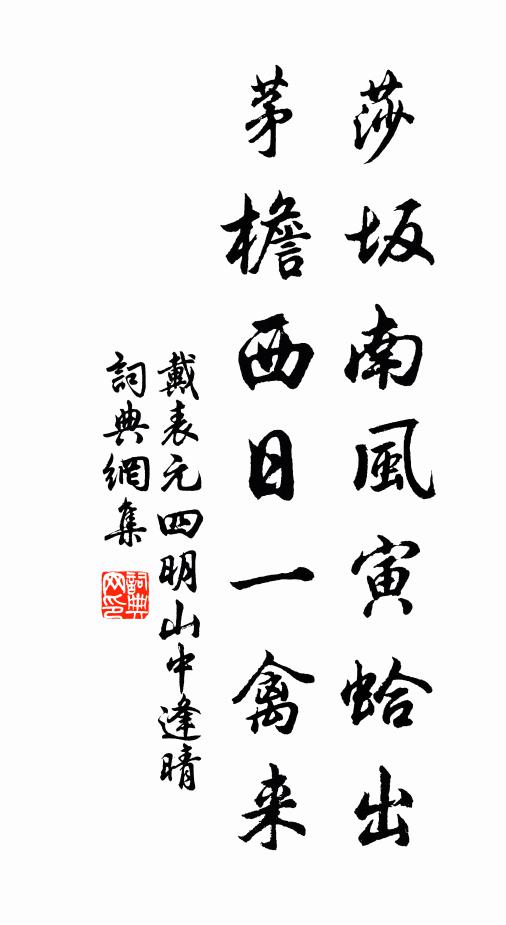 莎坂南風寅蛤出
茅檐西日一禽来
戴表元四明山中逢晴
詞典網集
詞典
网印